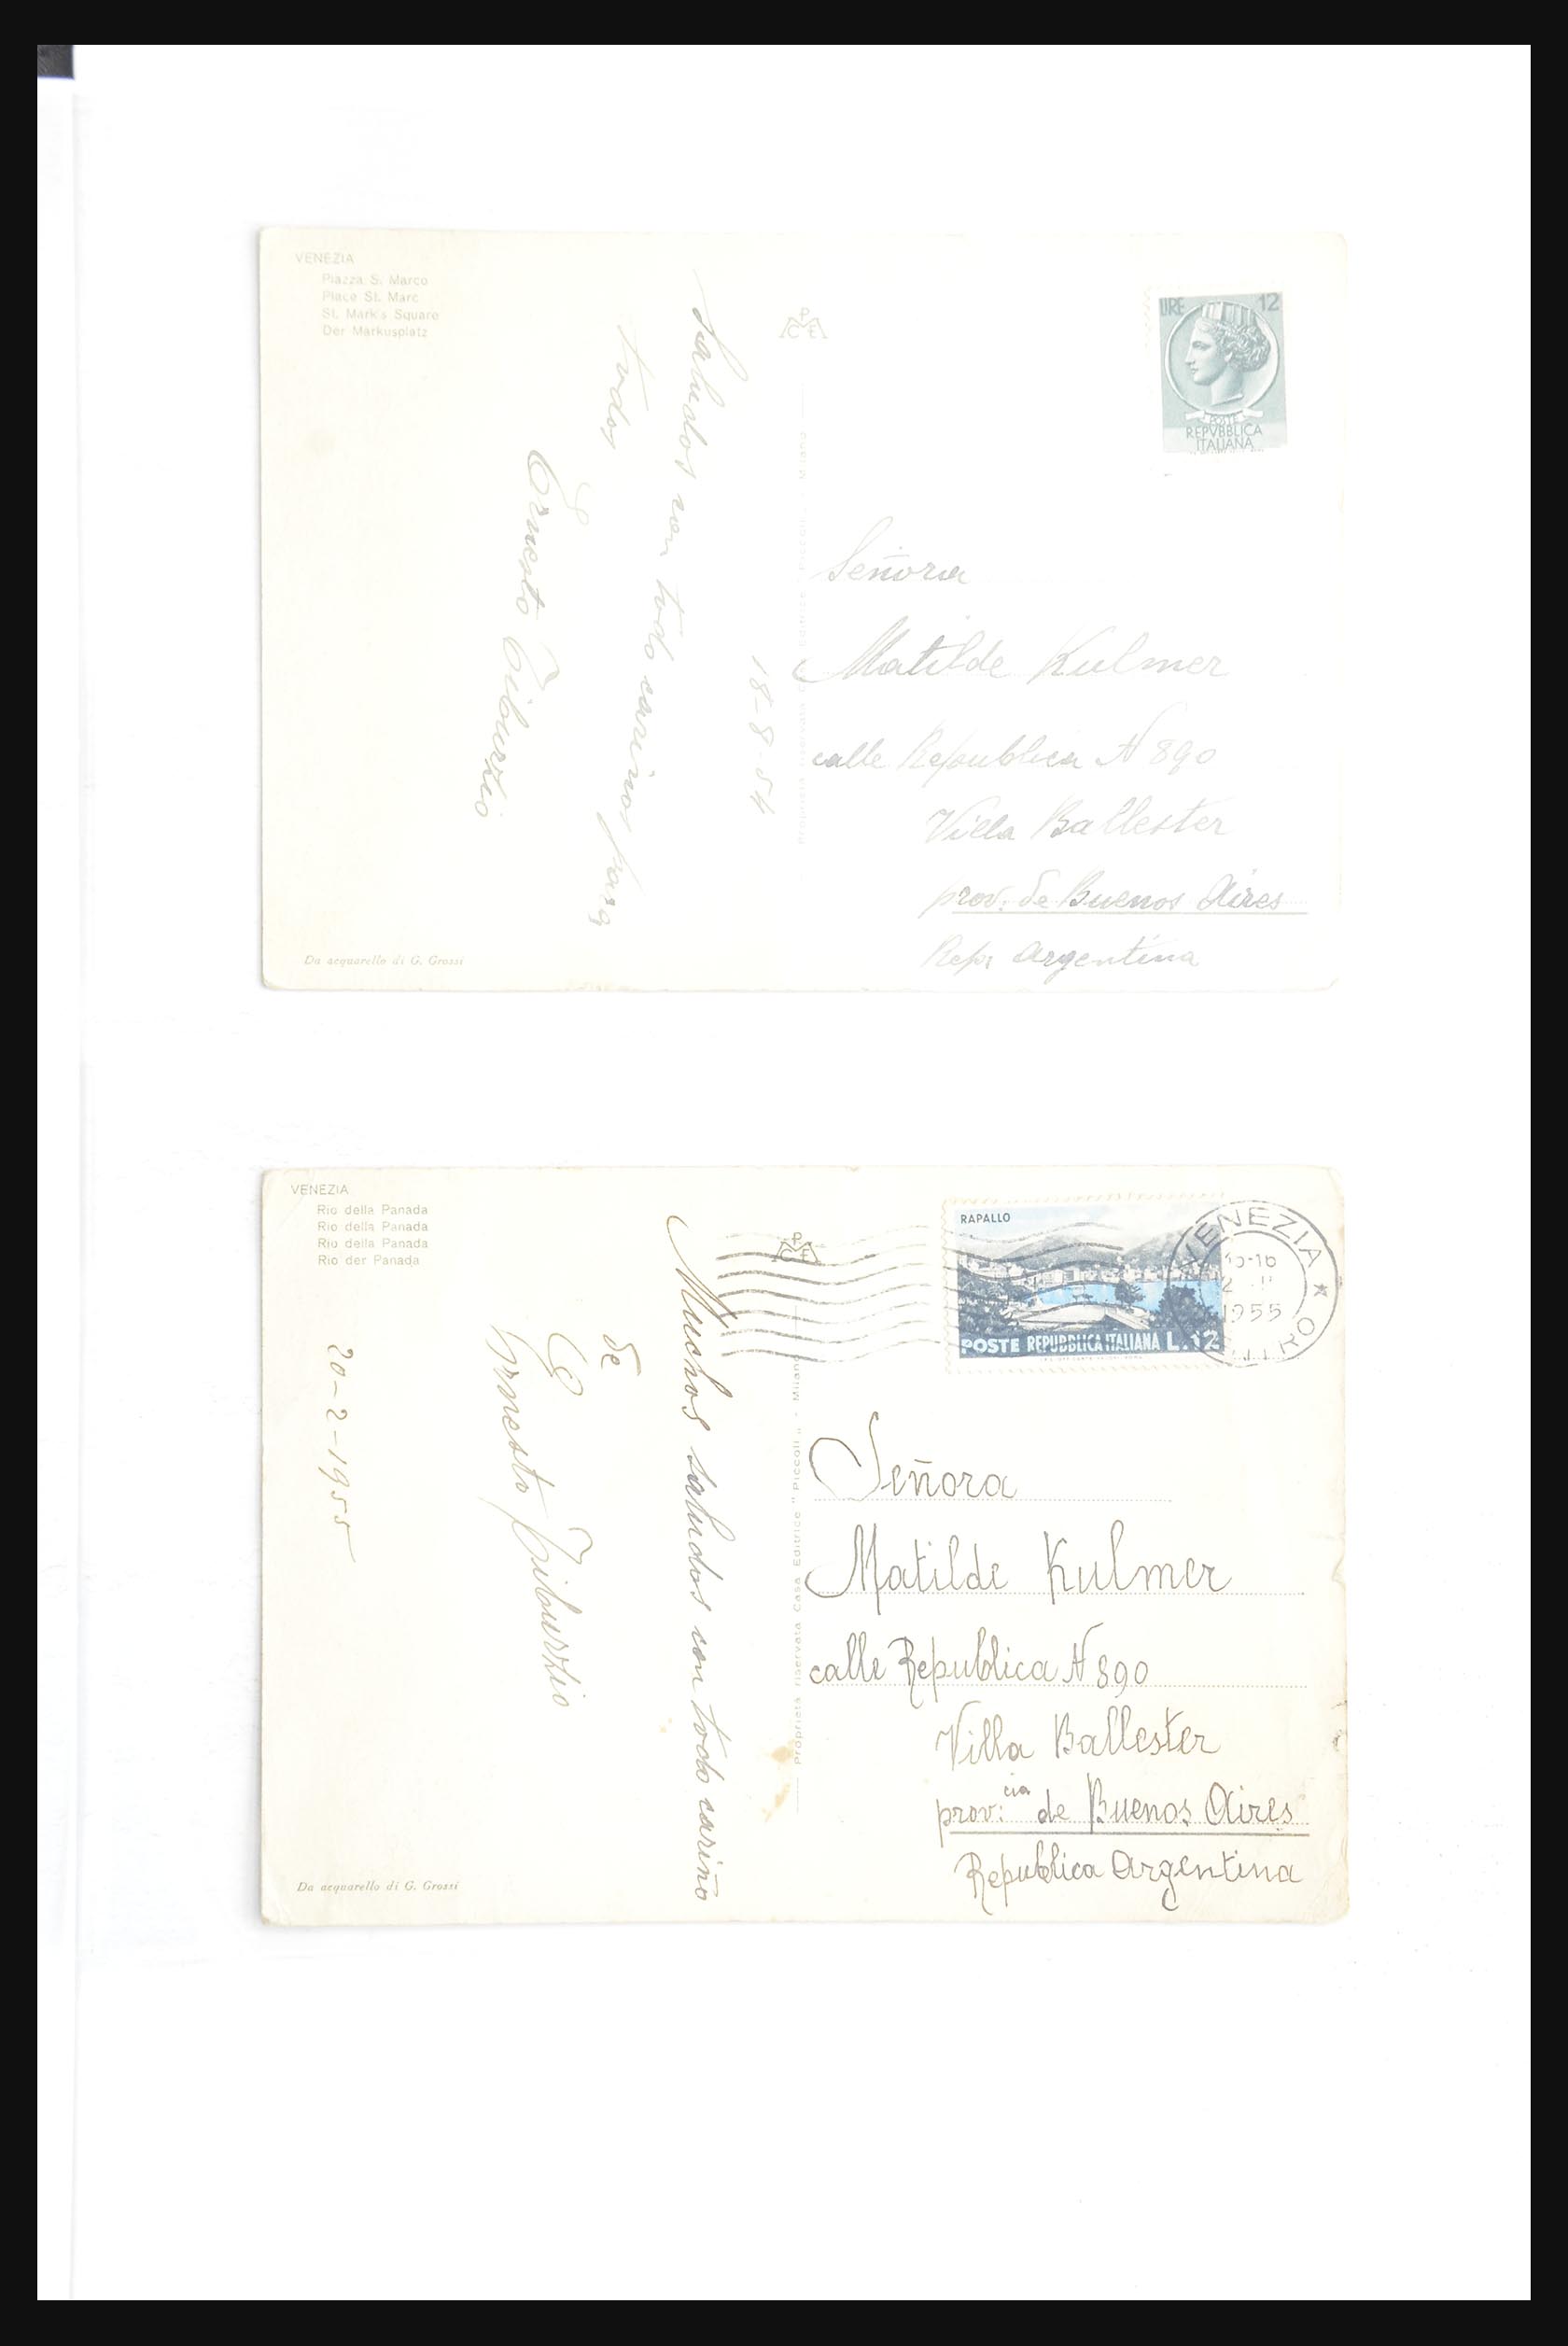 VENEZIA
Piazza S. Marco
Place St. Marc
St. Mark's Square
Der Markusplatz
Da acquarello di G. Grossi
18-8-54
Saludos con todo cariño para
todos
de
Ernesto Tiburzio
PMCE
Proprietà riservata Casa Editrice "Piccoli" - Milano
LIRE 12
POSTE
REPVBBLICA
ITALIANA
Señora
Matilde Kulmer
calle Republica N 890
Villa Ballester
prov. de Buenos Aires
Rep. Argentina
VENEZIA
Rio della Panada
Rio della Panada
Rio della Panada
Rio der Panada
Da acquarello di G. Grossi
Muchos saludos con todo cariño
de
Ernesto Tiburzio
20-2-1955
PMCE
Proprietà riservata Casa Editrice "Piccoli" - Milano
RAPALLO
POSTE REPUBBLICA ITALIANA L.12
VENEZIA *
1955
Señora
Matilde Kulmer
calle Republica N 890
Villa Ballester
prov:cia de Buenos Aires
Republica Argentina